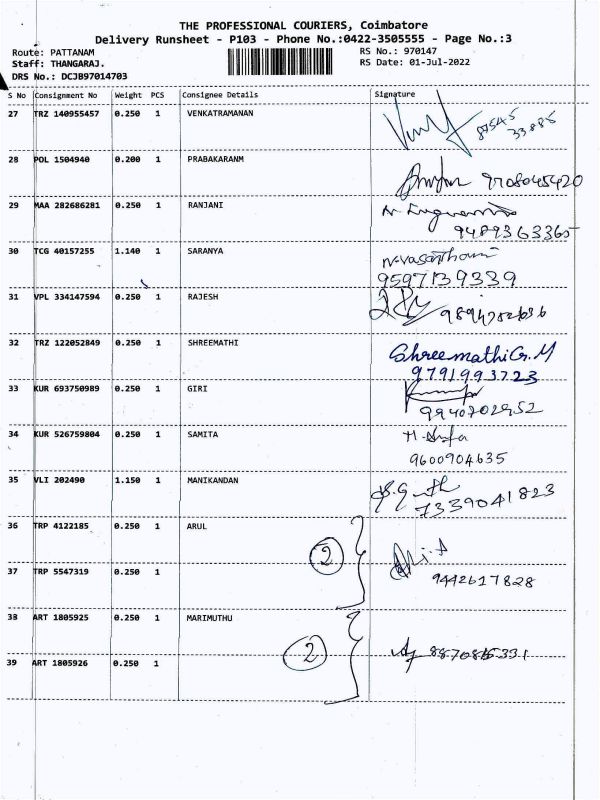 THE PROFESSIONAL COURIERS, Coimbatore
Delivery Runsheet - P103 - Phone No.:0422-3505555 - Page No.:3
Route: PATTANAM
RS No.: 970147
Staff: THANGARAJ.
RS Date: 01-Jul-2022
DRS No.: DCJB97014703
S No Consignment No Weight PCS Consignee Details Signature
27 TRZ 140955457 0.250 1 VENKATRAMANAN 87545
33885
28 POL 1504940 0.200 1 PRABAKARANM
9708045420
29 MAA 282686281 0.250 1 RANJANI
9489363365
30 TCG 40157255 1.140 1 SARANYA N.Vasanthami
9597139339
31 VPL 334147594 0.250 1 RAJESH
32 TRZ 122052849 0.250 1 SHREEMATHI ShreemathiG.M
9791993723
33 KUR 693750989 0.250 1 GIRI
9940702952
34 KUR 526759804 0.250 1 SAMITA
9600904635
35 VLI 202490 1.150 1 MANIKANDAN
7339041823
36 TRP 4122185 0.250 1 ARUL
2
37 TRP 5547319 0.250 1
9442617828
38 ART 1805925 0.250 1 MARIMUTHU
2
39 ART 1805926 0.250 1